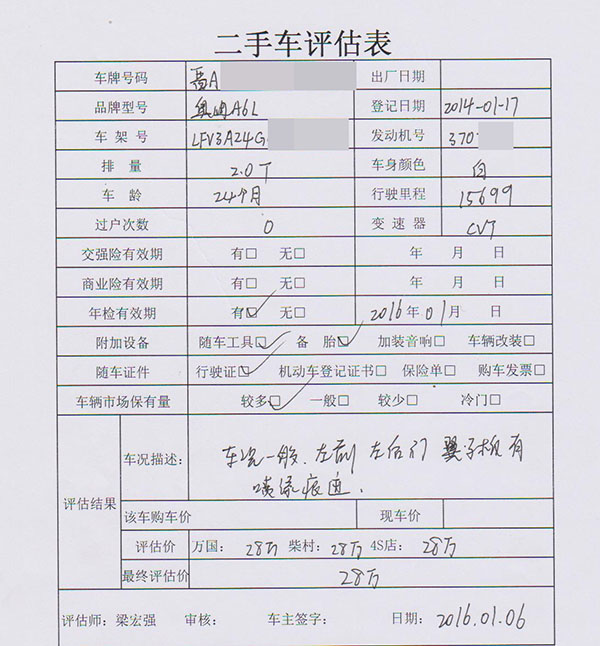 二手车评估表
车牌号码 晋A 出厂日期
品牌型号 奥迪A6L 登记日期 2014-01-17
车架号 LFV3A24G 发动机号 370
排量 2.0T 车身颜色 白
车龄 24个月 行驶里程 15699
过户次数 0 变速器 CVT
交强险有效期 有□ 无□ 年 月 日
商业险有效期 有□ 无□ 年 月 日
年检有效期 有☑ 无□ 2016年01月 日
附加设备 随车工具☑ 备胎☑ 加装音响□ 车辆改装□
随车证件 行驶证☑ 机动车登记证书□ 保险单□ 购车发票□
车辆市场保有量 较多☑ 一般□ 较少□ 冷门□
评估结果 车况描述: 车况一般、左前 左后门 翼子板有
喷漆痕迹.
该车购车价 现车价
评估价 万国: 28万 柴村: 28万 4S店: 28万
最终评估价 28万
评估师: 梁宏强 审核: 车主签字: 日期: 2016.01.06